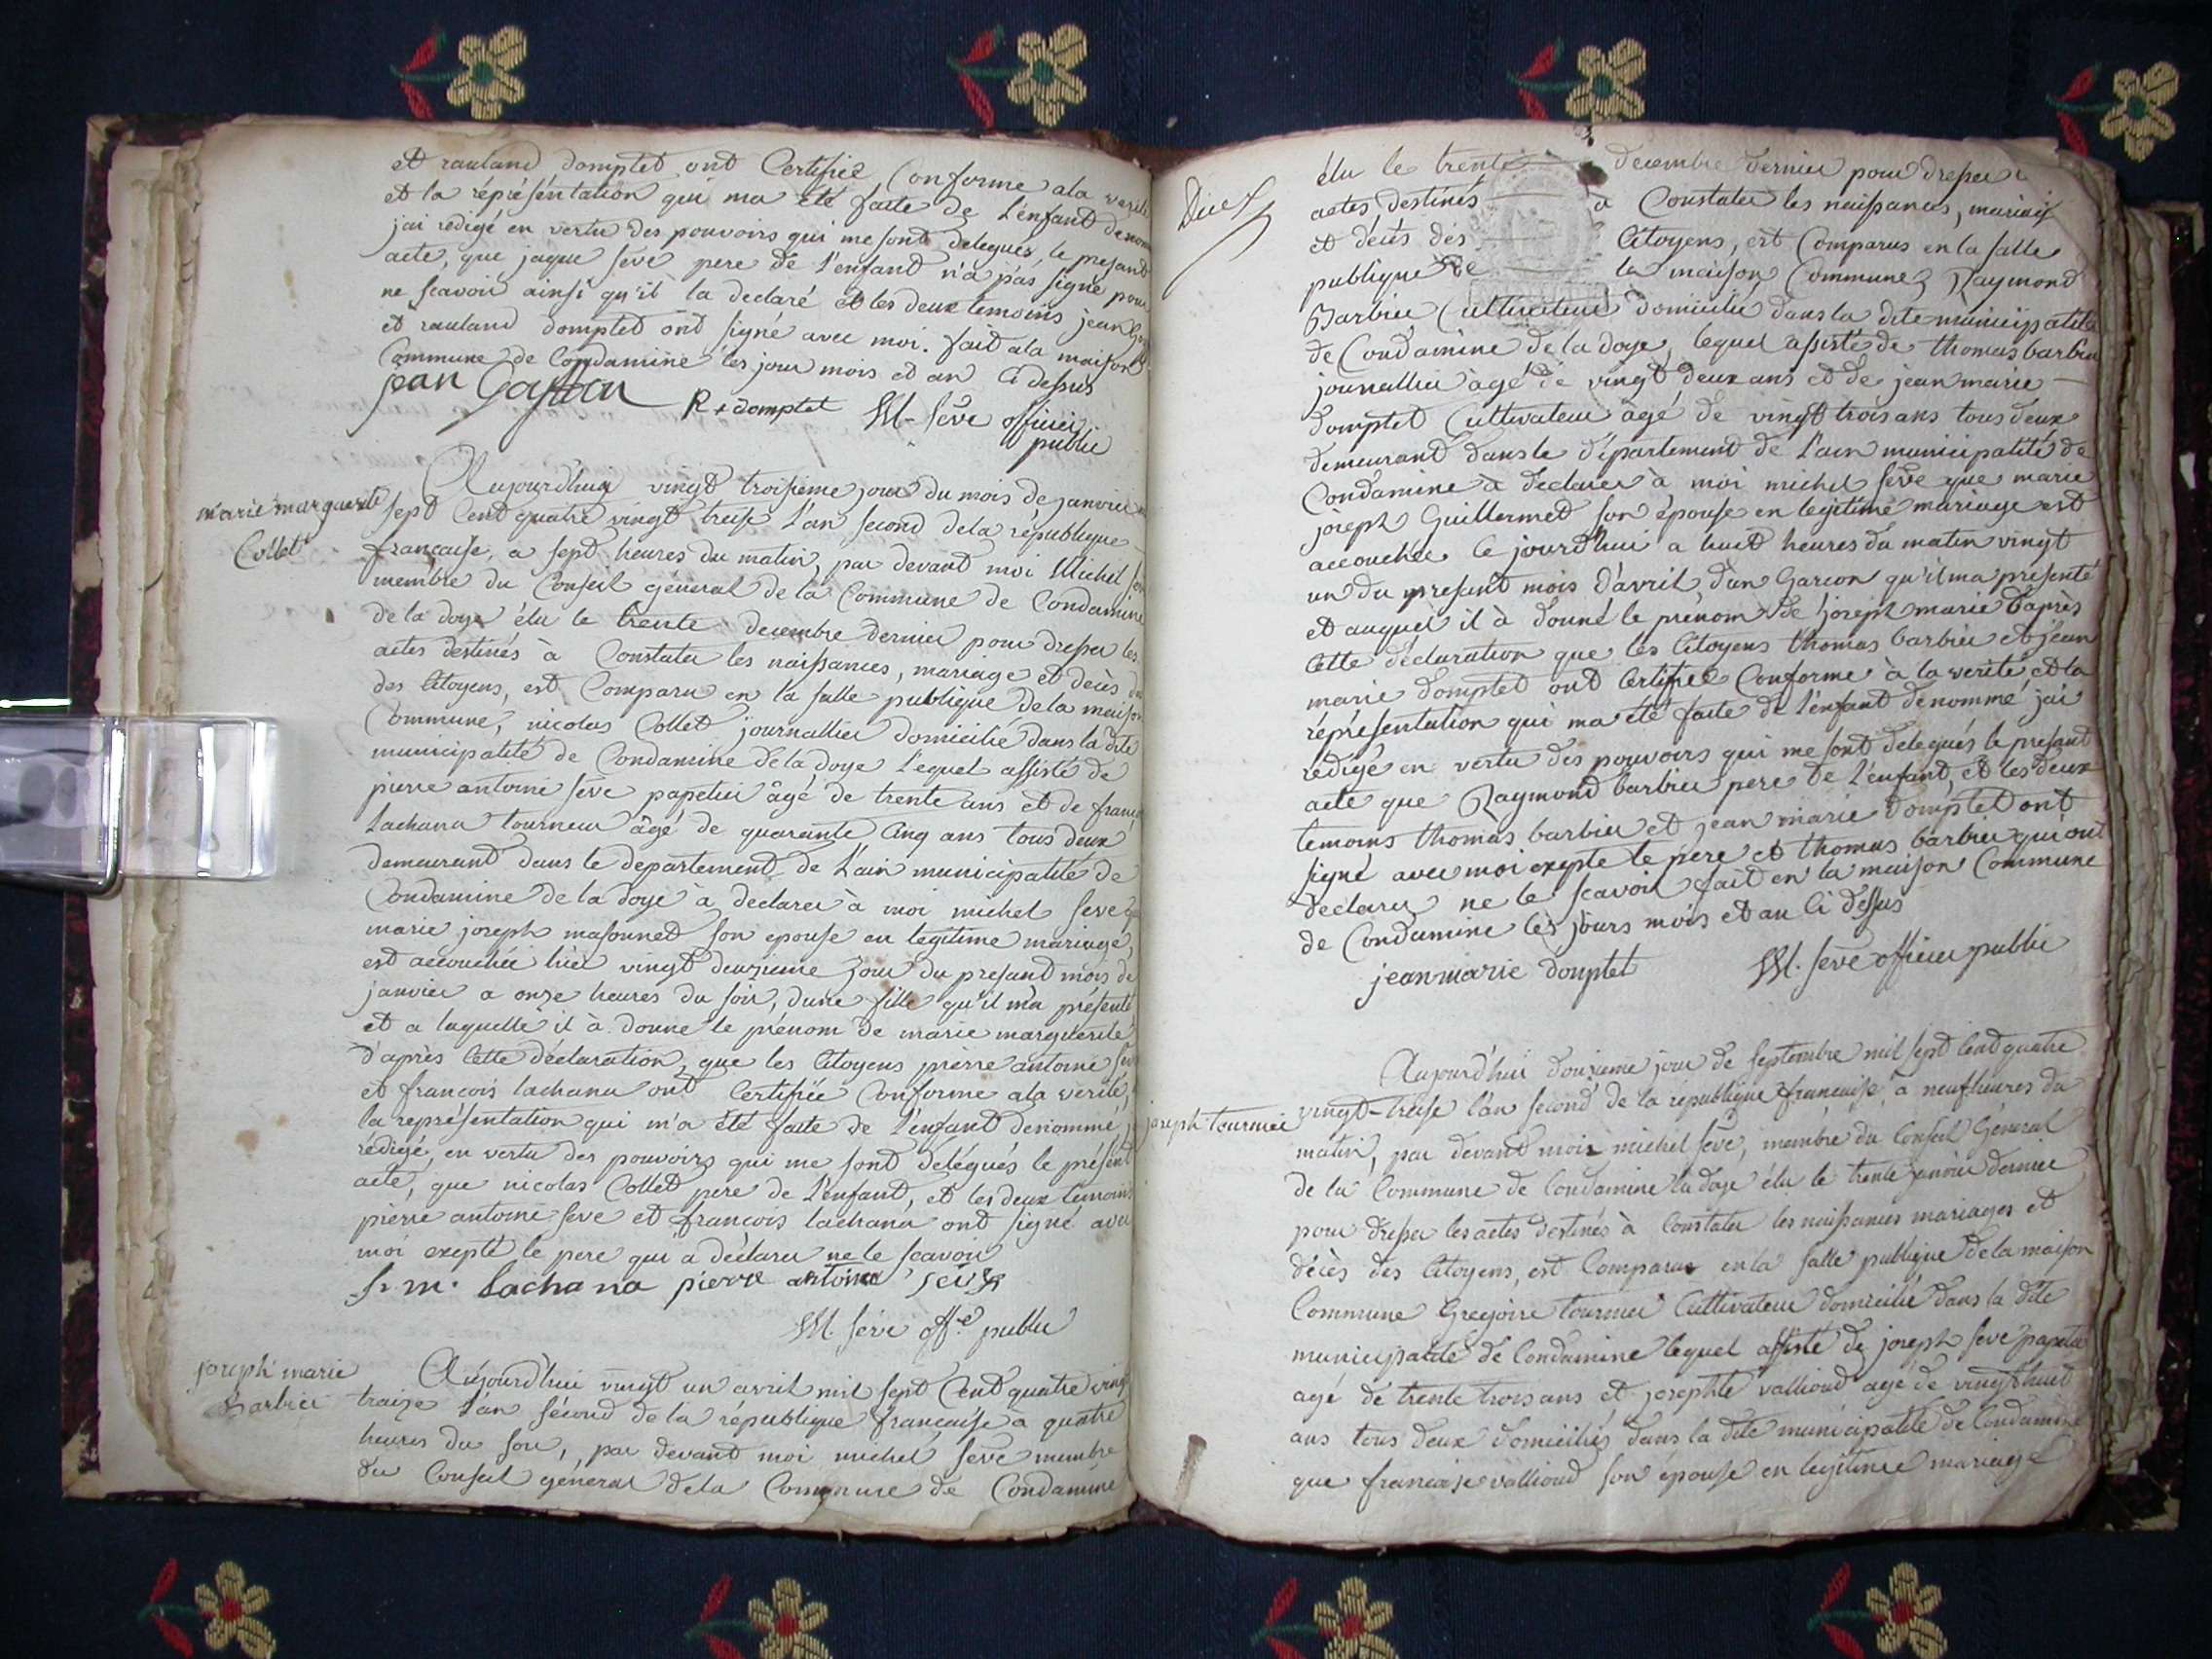 et rauland domptet ont Certifiée Conforme a la verité
et la réprésentation qui ma été faite de L'enfant denom
jai redigé en vertu des pouvoirs qui me sont delegués, le presant
acte, que jaque seve pere de l'enfant n'a pas signé pour
ne scavoir ainsi qu'il la declaré et les deux temoins jean
et rauland domptet ont signé avec moi. fait a la maison
Commune de Condamine les jour mois et an Ci dessus
jean R+domptet M. Seve officier
public
marie marguerite
Collet
Aujourdhuy vingt troisieme jour du mois de janvier
sept Cent quatre vingt treise L'an second de la republique
française, a sept heures du matin, par devant moi Michel
membre du Conseil général de la Commune de Condamine
de la doye élu le trente decembre dernier pour dresser les
actes destinés à Constater les naissances, mariage et decès
des Citoyens, est Comparu en la salle publique de la maison
Commune, nicolas Collet journallier domicilié dans la dite
municipalité de Condamine de la doye Lequel assisté de
pierre antoine seve papetier âgé de trente ans et de franç
Lachana tourneur âgé de quarante Cinq ans tous deux
demeurant dans le departement de L'ain municipalité de
Condamine de la doye à declarer à moi michel seve
marie joseph masonned son epouse en legitime mariage
est accouchée hier vingt deuxieme jour du presant mois de
janvier a onze heures du soir, dune fille qu'il m'a présenté
et a laquelle il à donné le prénom de marie marguerite
d'après Cette déclaration, que les Citoyens pierre antoine
et francois lachana ont Certifiée Conforme a la verité,
la représentation qui m'a été faite de L'enfant dénommé
rédigé, en vertu des pouvoirs qui me sont délégués le présent
acte, que nicolas Collet pere de L'enfant, et les deux temoins
pierre antoine seve et francois lachana ont signé avec
moi exepté le pere qui a déclarer ne le scavoir
f. m. Lachana pierre antoine seive
M. séve off.er public
joseph marie
Barbier
Aujourd'hui vingt un avril mil sept Cent quatre vingt
traize L'an sécond de la république française a quatre
heures du soir, par devant moi michel seve membre
du Conseil géneral de la Commune de Condamine
élu le trente decembre dernier pour dresser
actes destinés à Constater les naissances, mariage
et décès des Citoyens, est Comparus en la salle
publique de la maison Commune, Raymond
Barbier Cultivateur domicilié dans la dite municipalité
de Condamine de la doye, lequel assisté de thomas barbier
journallier âgé de vingt deux ans et de jean marie
domptet Cultivateur âgé de vingt trois ans tous deux
demeurant dans le département de L'ain municipalité de
Condamine à declarer à moi michel sève que marie
joseph Guillermet son épouse en legitime mariage est
accouchée Ce jourd'hui a huit heures du matin vingt
un du presant mois d'avril d'un Garcon qu'il ma présenté
et auquel il à donné le prénom de joseph marie d'après
Cette déclaration que les Citoyens thomas barbier et jean
marie domptet ont Certifiée Conforme à la verité et la
réprésentation qui ma été faite de L'enfant dénommé jai
redigé en vertu des pouvoirs qui me sont delegués le presant
acte que Raymond barbier pere de L'enfant, et les deux
temoins thomas barbier et jean marie domptet ont
signé avec moi exepté le pere et thomas barbier qui ont
declaru ne le scavoir fait en la maison Commune
de Condamine les jours mois et an Ci dessus
jeanmarie domptet M. seve officier public
joseph tournier
Aujourd'hui douzieme jour de septembre mil sept Cent quatre
vingt-treise l'an second de la république francaise, a neuf heures du
matin, par devant moi michel seve, membre du Conseil Général
de la Commune de Condamine la doye élu le trente janvier dernier
pour dresser les actes destinés à Constater les naissances mariages et
décès des Citoyens, est Comparus en la salle publique de la maison
Commune Gregoire tournier Cultivateur domicilié dans la dite
municipalité de Condamine lequel assisté de joseph seve papetier
agé de trente trois ans et josephte vallioud agé de vingt huit
ans tous deux domiciliés dans la dite municipalité de Condamine
que francaise vallioud son épouse en legitime mariage